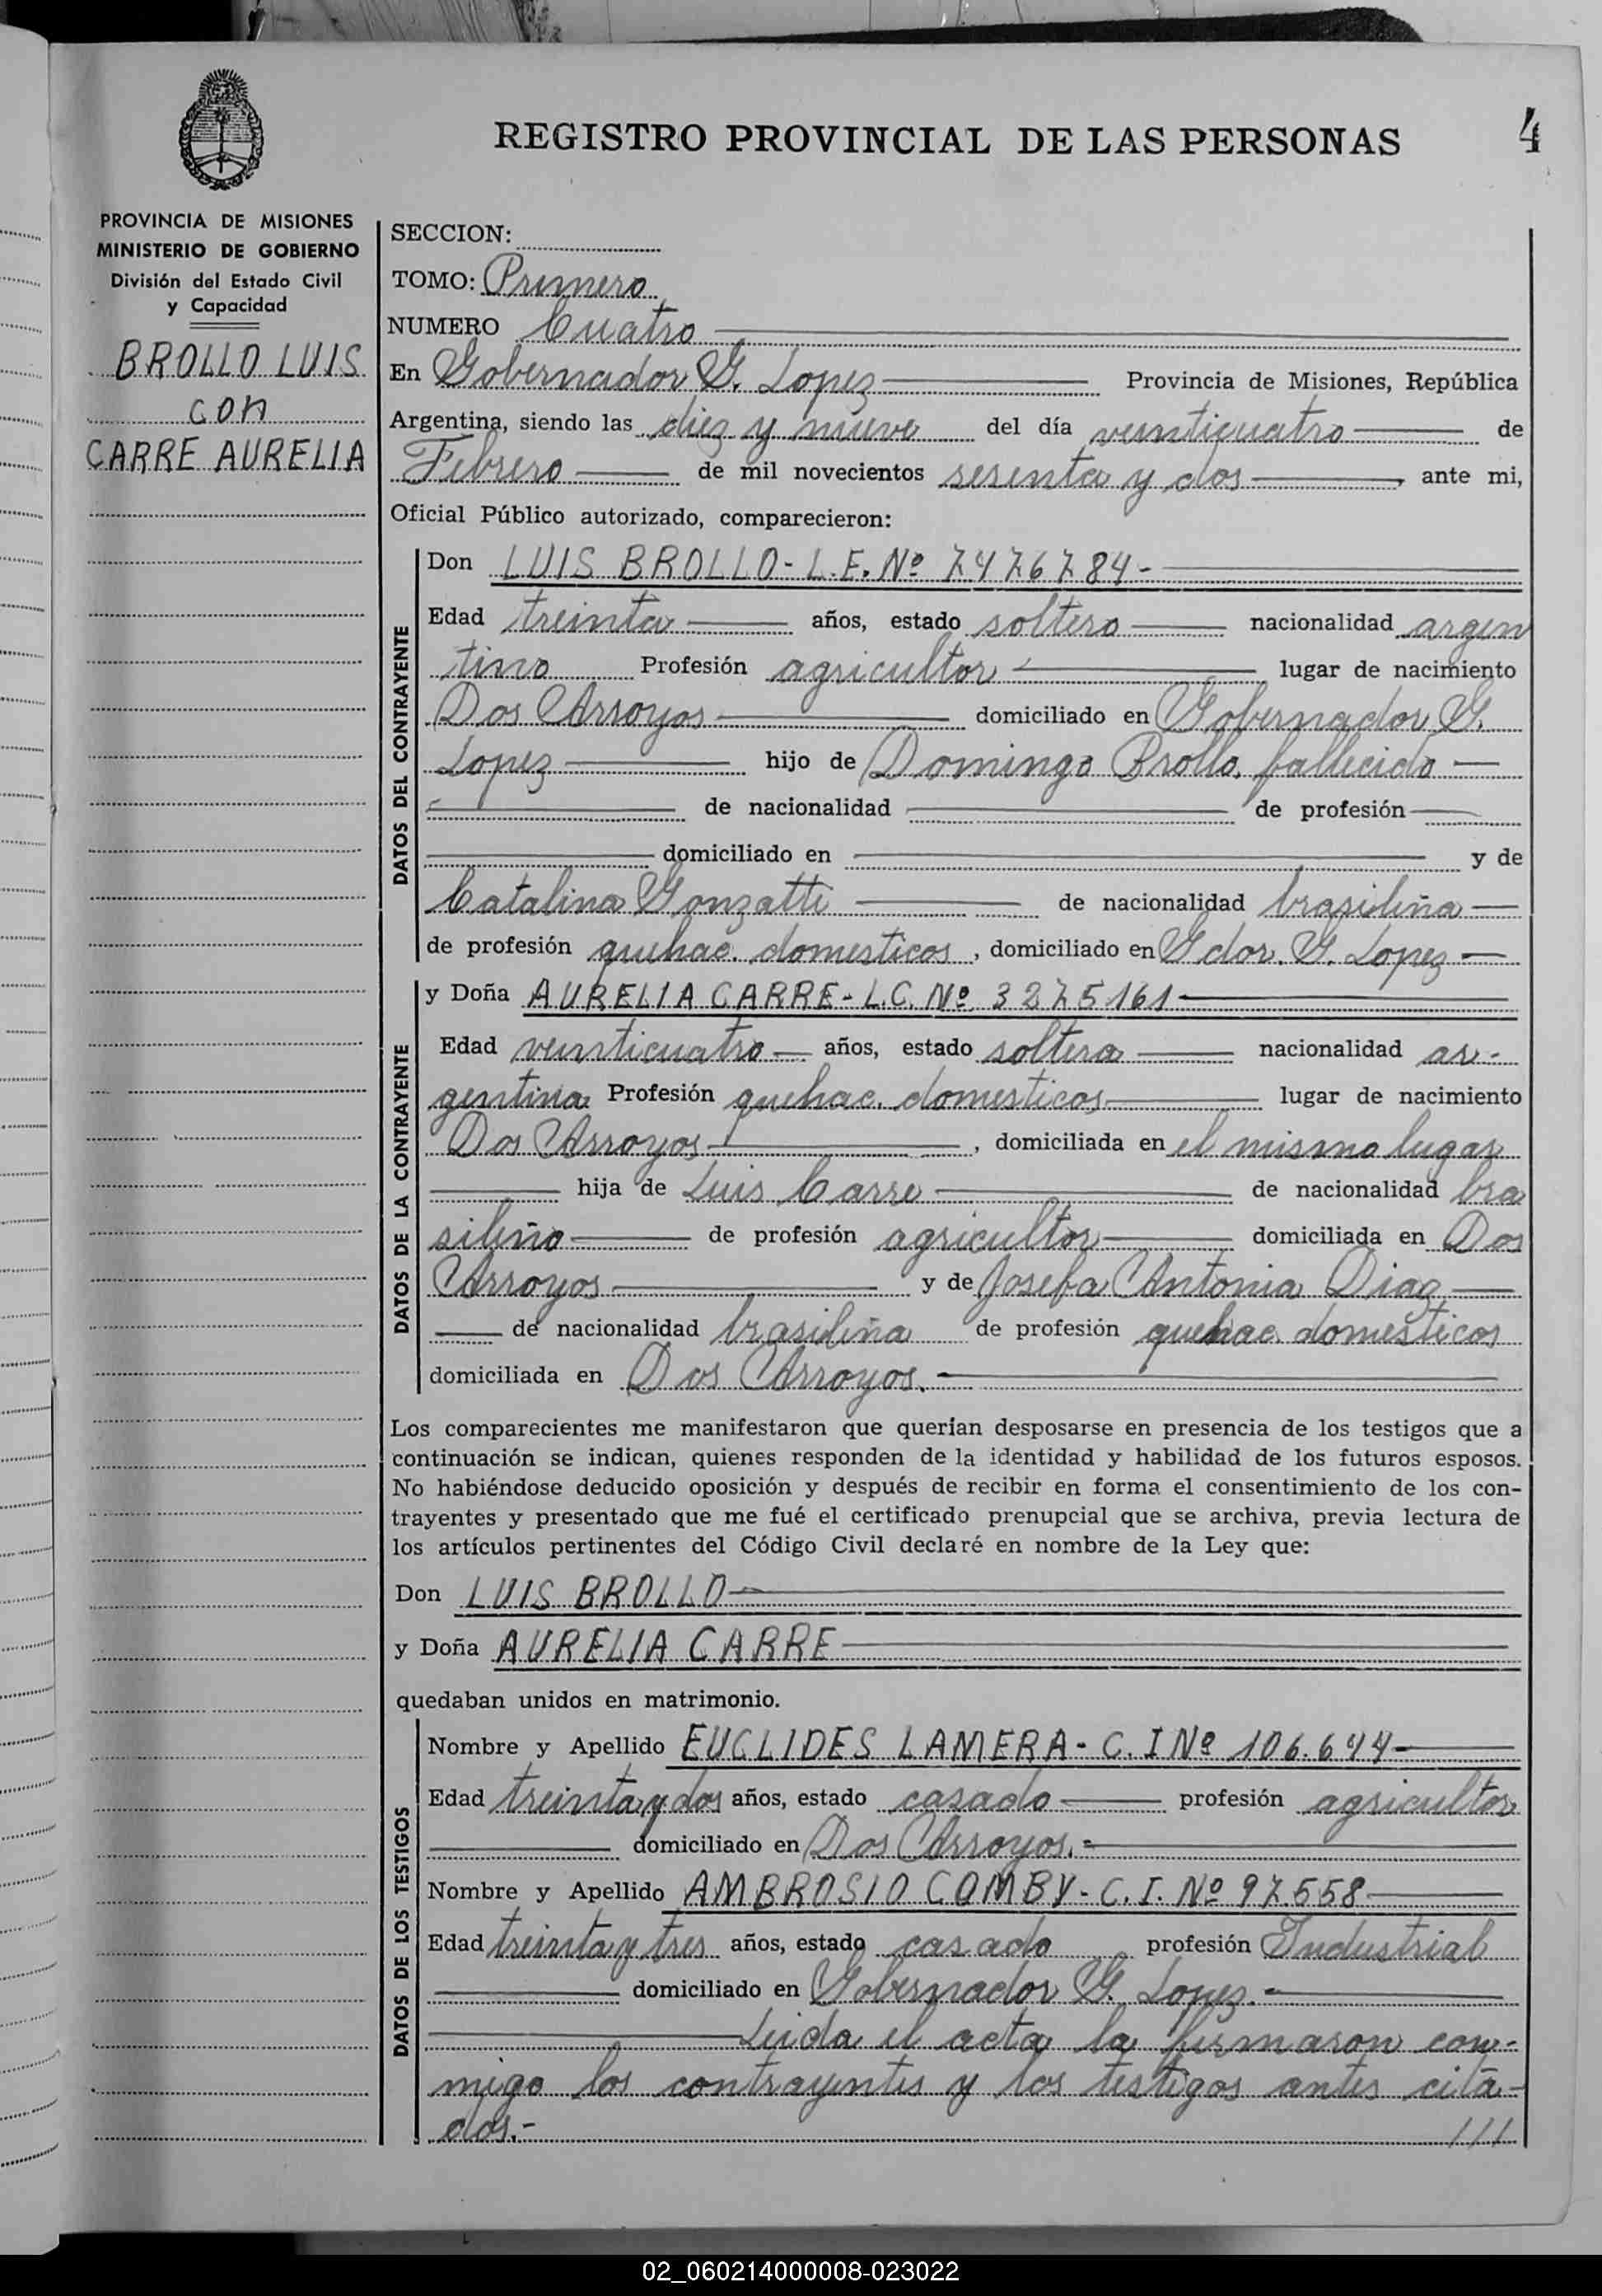 REGISTRO PROVINCIAL DE LAS PERSONAS
4
PROVINCIA DE MISIONES
MINISTERIO DE GOBIERNO
División del Estado Civil
y Capacidad
BROLLO LUIS
con
CARRE AURELIA
SECCION:
TOMO: Primero
NUMERO Cuatro
En Gobernador G. Lopez Provincia de Misiones, República
Argentina, siendo las diez y nueve del día veinticuatro de
Febrero de mil novecientos sesenta y dos, ante mi,
Oficial Público autorizado, comparecieron:
DATOS DEL CONTRAYENTE
Don LUIS BROLLO - L.E. Nº 7476784-
Edad treinta años, estado soltero nacionalidad argen
tino Profesión agricultor lugar de nacimiento
Dos Arroyos domiciliado en Gobernador G.
Lopez hijo de Domingo Brollo, fallecido
de nacionalidad de profesión
domiciliado en y de
Catalina Gonzatti de nacionalidad brasileña
de profesión quehac. domesticos, domiciliado en Gdor. G. Lopez
DATOS DE LA CONTRAYENTE
y Doña AURELIA CARRE - L.C. Nº 3275161
Edad veinticuatro años, estado soltera nacionalidad ar-
gentina Profesión quehac. domesticos lugar de nacimiento
Dos Arroyos, domiciliada en el mismo lugar
hija de Luis Carre de nacionalidad bra
sileño de profesión agricultor domiciliada en Dos
Arroyos y de Josefa Antonia Diaz
de nacionalidad brasileña de profesión quehac. domesticos
domiciliada en Dos Arroyos.
Los comparecientes me manifestaron que querían desposarse en presencia de los testigos que a
continuación se indican, quienes responden de la identidad y habilidad de los futuros esposos.
No habiéndose deducido oposición y después de recibir en forma el consentimiento de los con-
trayentes y presentado que me fué el certificado prenupcial que se archiva, previa lectura de
los artículos pertinentes del Código Civil declaré en nombre de la Ley que:
Don LUIS BROLLO
y Doña AURELIA CARRE
quedaban unidos en matrimonio.
DATOS DE LOS TESTIGOS
Nombre y Apellido EUCLIDES LAMERA - C. I Nº 106.644
Edad treinta y dos años, estado casado profesión agricultor
domiciliado en Dos Arroyos.=
Nombre y Apellido AMBROSIO COMBY - C. I. Nº 97.558
Edad treinta y tres años, estado casado profesión Industrial
domiciliado en Gobernador G. Lopez.=
Leida el acta la firmaron con-
migo los contrayentes y los testigos antes cita-
dos.- ///
02_060214000008-023022